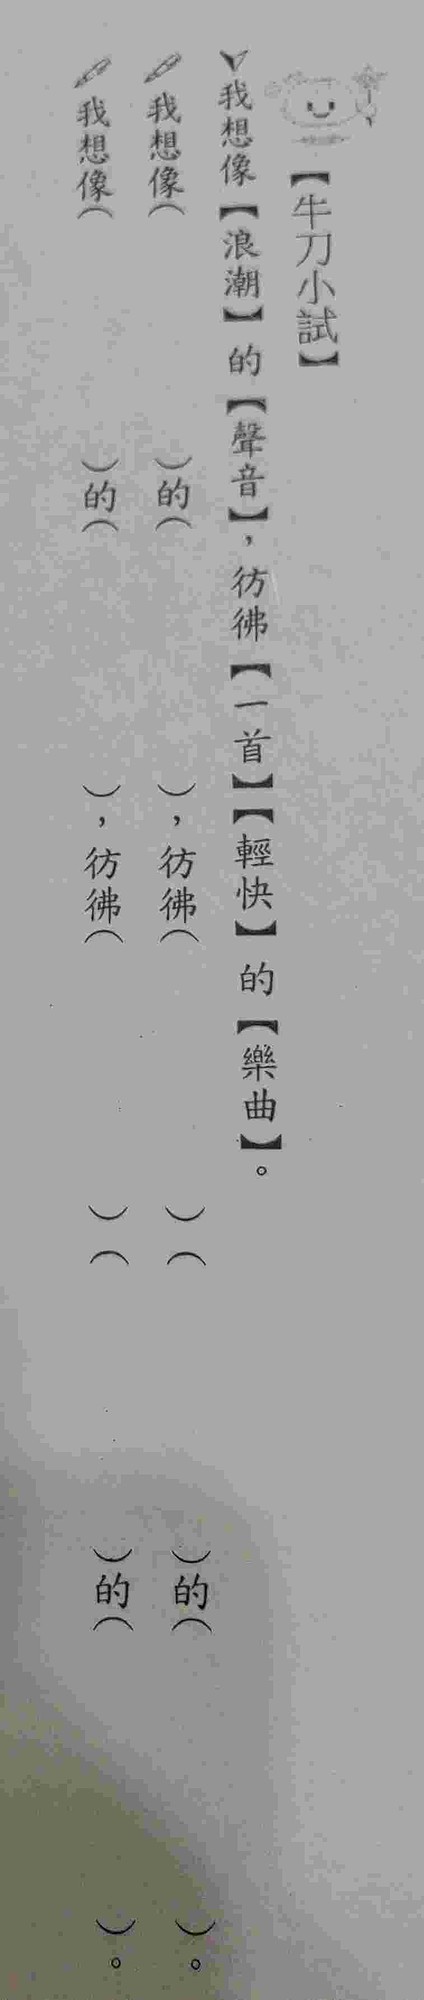 【牛刀小試】
我想像【浪潮】的【聲音】，彷彿【一首】【輕快】的【樂曲】。
我想像（ ）的（ ），彷彿（ ）（ ）的（ ）。
我想像（ ）的（ ），彷彿（ ）（ ）的（ ）。